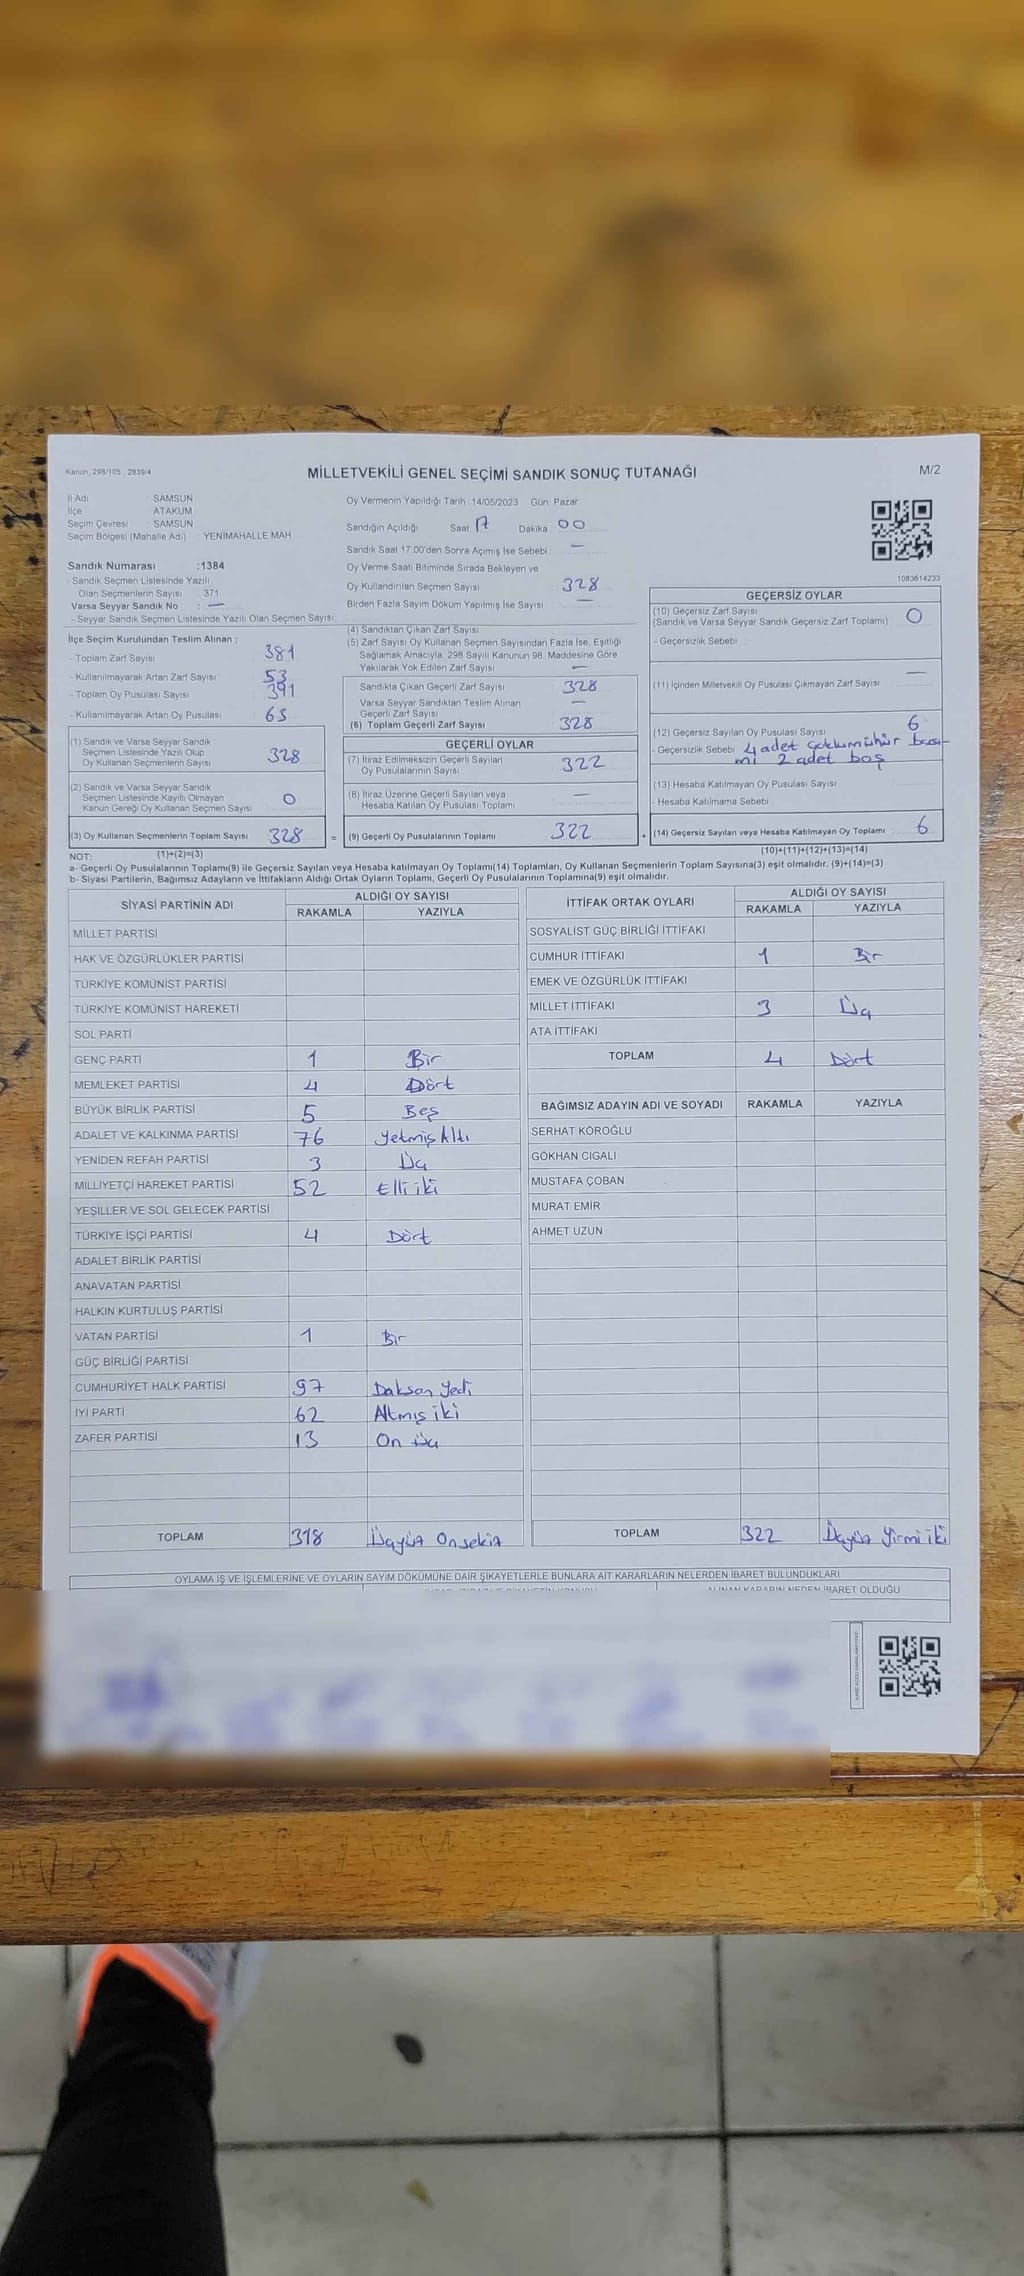 Kanun, 298/105 , 2839/4
MİLLETVEKİLİ GENEL SEÇİMİ SANDIK SONUÇ TUTANAĞI
M/2
İl Adı : SAMSUN
İlçe : ATAKUM
Seçim Çevresi : SAMSUN
Seçim Bölgesi (Mahalle Adı) : YENİMAHALLE MAH
Sandık Numarası :1384
- Sandık Seçmen Listesinde Yazılı
Olan Seçmenlerin Sayısı : 371
Varsa Seyyar Sandık No : —
- Seyyar Sandık Seçmen Listesinde Yazılı Olan Seçmen Sayısı:
Oy Vermenin Yapıldığı Tarih :14/05/2023 Gün: Pazar
Sandığın Açıldığı Saat 17 Dakika 00
Sandık Saat 17.00'den Sonra Açımış İse Sebebi : —
Oy Verme Saati Bitiminde Sırada Bekleyen ve
Oy Kullandırılan Seçmen Sayısı : 328
Birden Fazla Sayım Döküm Yapılmış İse Sayısı : —
1083614233
İlçe Seçim Kurulundan Teslim Alınan ;
- Toplam Zarf Sayısı : 381
- Kullanılmayarak Artan Zarf Sayısı : 53
- Toplam Oy Pusulası Sayısı : 391
- Kullanılmayarak Artan Oy Pusulası : 63
(1) Sandık ve Varsa Seyyar Sandık
Seçmen Listesinde Yazılı Olup
Oy Kullanan Seçmenlerin Sayısı : 328
(2) Sandık ve Varsa Seyyar Sandık
Seçmen Listesinde Kayıtlı Olmayan
Kanun Gereği Oy Kullanan Seçmen Sayısı : 0
(3) Oy Kullanan Seçmenlerin Toplam Sayısı : 328 =
(4) Sandıktan Çıkan Zarf Sayısı :
(5) Zarf Sayısı Oy Kullanan Seçmen Sayısından Fazla İse, Eşitliği
Sağlamak Amacıyla, 298 Sayılı Kanunun 98. Maddesine Göre
Yakılarak Yok Edilen Zarf Sayısı : —
Sandıkta Çıkan Geçerli Zarf Sayısı : 328
Varsa Seyyar Sandıktan Teslim Alınan
Geçerli Zarf Sayısı : —
(6) Toplam Geçerli Zarf Sayısı : 328
GEÇERLİ OYLAR
(7) İtiraz Edilmeksizin Geçerli Sayılan
Oy Pusulalarının Sayısı : 322
(8) İtiraz Üzerine Geçerli Sayılan veya
Hesaba Katılan Oy Pusulası Toplamı : —
(9) Geçerli Oy Pusulalarının Toplamı : 322 +
GEÇERSİZ OYLAR
(10) Geçersiz Zarf Sayısı
(Sandık ve Varsa Seyyar Sandık Geçersiz Zarf Toplamı) : 0
- Geçersizlik Sebebi :
(11) İçinden Milletvekili Oy Pusulası Çıkmayan Zarf Sayısı : —
(12) Geçersiz Sayılan Oy Pusulası Sayısı : 6
- Geçersizlik Sebebi : 4 adet çoklu mühür bası-
mı 2 adet boş
(13) Hesaba Katılmayan Oy Pusulası Sayısı :
- Hesaba Katılmama Sebebi :
(14) Geçersiz Sayılan veya Hesaba Katılmayan Oy Toplamı : 6
NOT: (1)+(2)=(3) (10)+(11)+(12)+(13)=(14)
a- Geçerli Oy Pusulalarının Toplamı(9) ile Geçersiz Sayılan veya Hesaba katılmayan Oy Toplamı(14) Toplamları, Oy Kullanan Seçmenlerin Toplam Sayısına(3) eşit olmalıdır. (9)+(14)=(3)
b- Siyasi Partilerin, Bağımsız Adayların ve İttifakların Aldığı Ortak Oyların Toplamı, Geçerli Oy Pusulalarının Toplamına(9) eşit olmalıdır.
SİYASİ PARTİNİN ADI ALDIĞI OY SAYISI
RAKAMLA YAZIYLA
MİLLET PARTİSİ
HAK VE ÖZGÜRLÜKLER PARTİSİ
TÜRKİYE KOMÜNİST PARTİSİ
TÜRKİYE KOMÜNİST HAREKETİ
SOL PARTİ
GENÇ PARTİ 1 Bir
MEMLEKET PARTİSİ 4 Dört
BÜYÜK BİRLİK PARTİSİ 5 Beş
ADALET VE KALKINMA PARTİSİ 76 Yetmiş Altı
YENİDEN REFAH PARTİSİ 3 Üç
MİLLİYETÇİ HAREKET PARTİSİ 52 Elli iki
YEŞİLLER VE SOL GELECEK PARTİSİ
TÜRKİYE İŞÇİ PARTİSİ 4 Dört
ADALET BİRLİK PARTİSİ
ANAVATAN PARTİSİ
HALKIN KURTULUŞ PARTİSİ
VATAN PARTİSİ 1 Bir
GÜÇ BİRLİĞİ PARTİSİ
CUMHURİYET HALK PARTİSİ 97 Doksan Yedi
İYİ PARTİ 62 Altmış iki
ZAFER PARTİSİ 13 On Üç
TOPLAM 318 Üçyüz Onsekiz
İTTİFAK ORTAK OYLARI ALDIĞI OY SAYISI
RAKAMLA YAZIYLA
SOSYALİST GÜÇ BİRLİĞİ İTTİFAKI
CUMHUR İTTİFAKI 1 Bir
EMEK VE ÖZGÜRLÜK İTTİFAKI
MİLLET İTTİFAKI 3 Üç
ATA İTTİFAKI
TOPLAM 4 Dört
BAĞIMSIZ ADAYIN ADI VE SOYADI RAKAMLA YAZIYLA
SERHAT KÖROĞLU
GÖKHAN CIGALI
MUSTAFA ÇOBAN
MURAT EMİR
AHMET UZUN
TOPLAM 322 Üçyüz Yirmi iki
OYLAMA İŞ VE İŞLEMLERİNE VE OYLARIN SAYIM DÖKÜMÜNE DAİR ŞİKAYETLERLE BUNLARA AİT KARARLARIN NELERDEN İBARET BULUNDUKLARI
ALINAN KARARIN NEDEN İBARET OLDUĞU